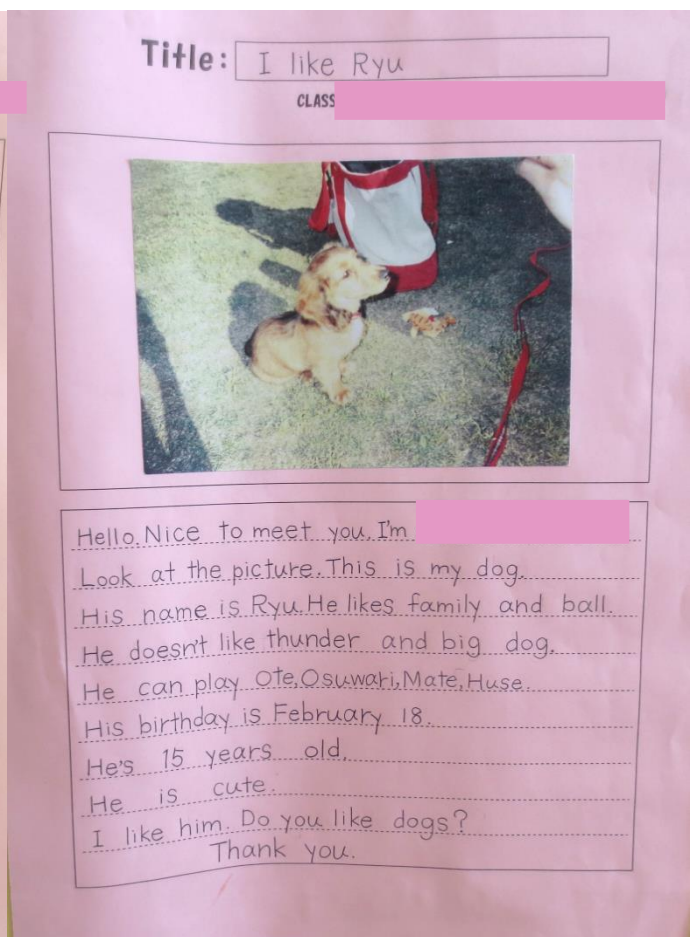 Title: I like Ryu
CLASS
Hello. Nice to meet you. I'm
Look at the picture. This is my dog.
His name is Ryu. He likes family and ball.
He doesn't like thunder and big dog.
He can play Ote, Osuwari, Mate, Huse.
His birthday is February 18.
He's 15 years old.
He is cute.
I like him. Do you like dogs?
Thank you.